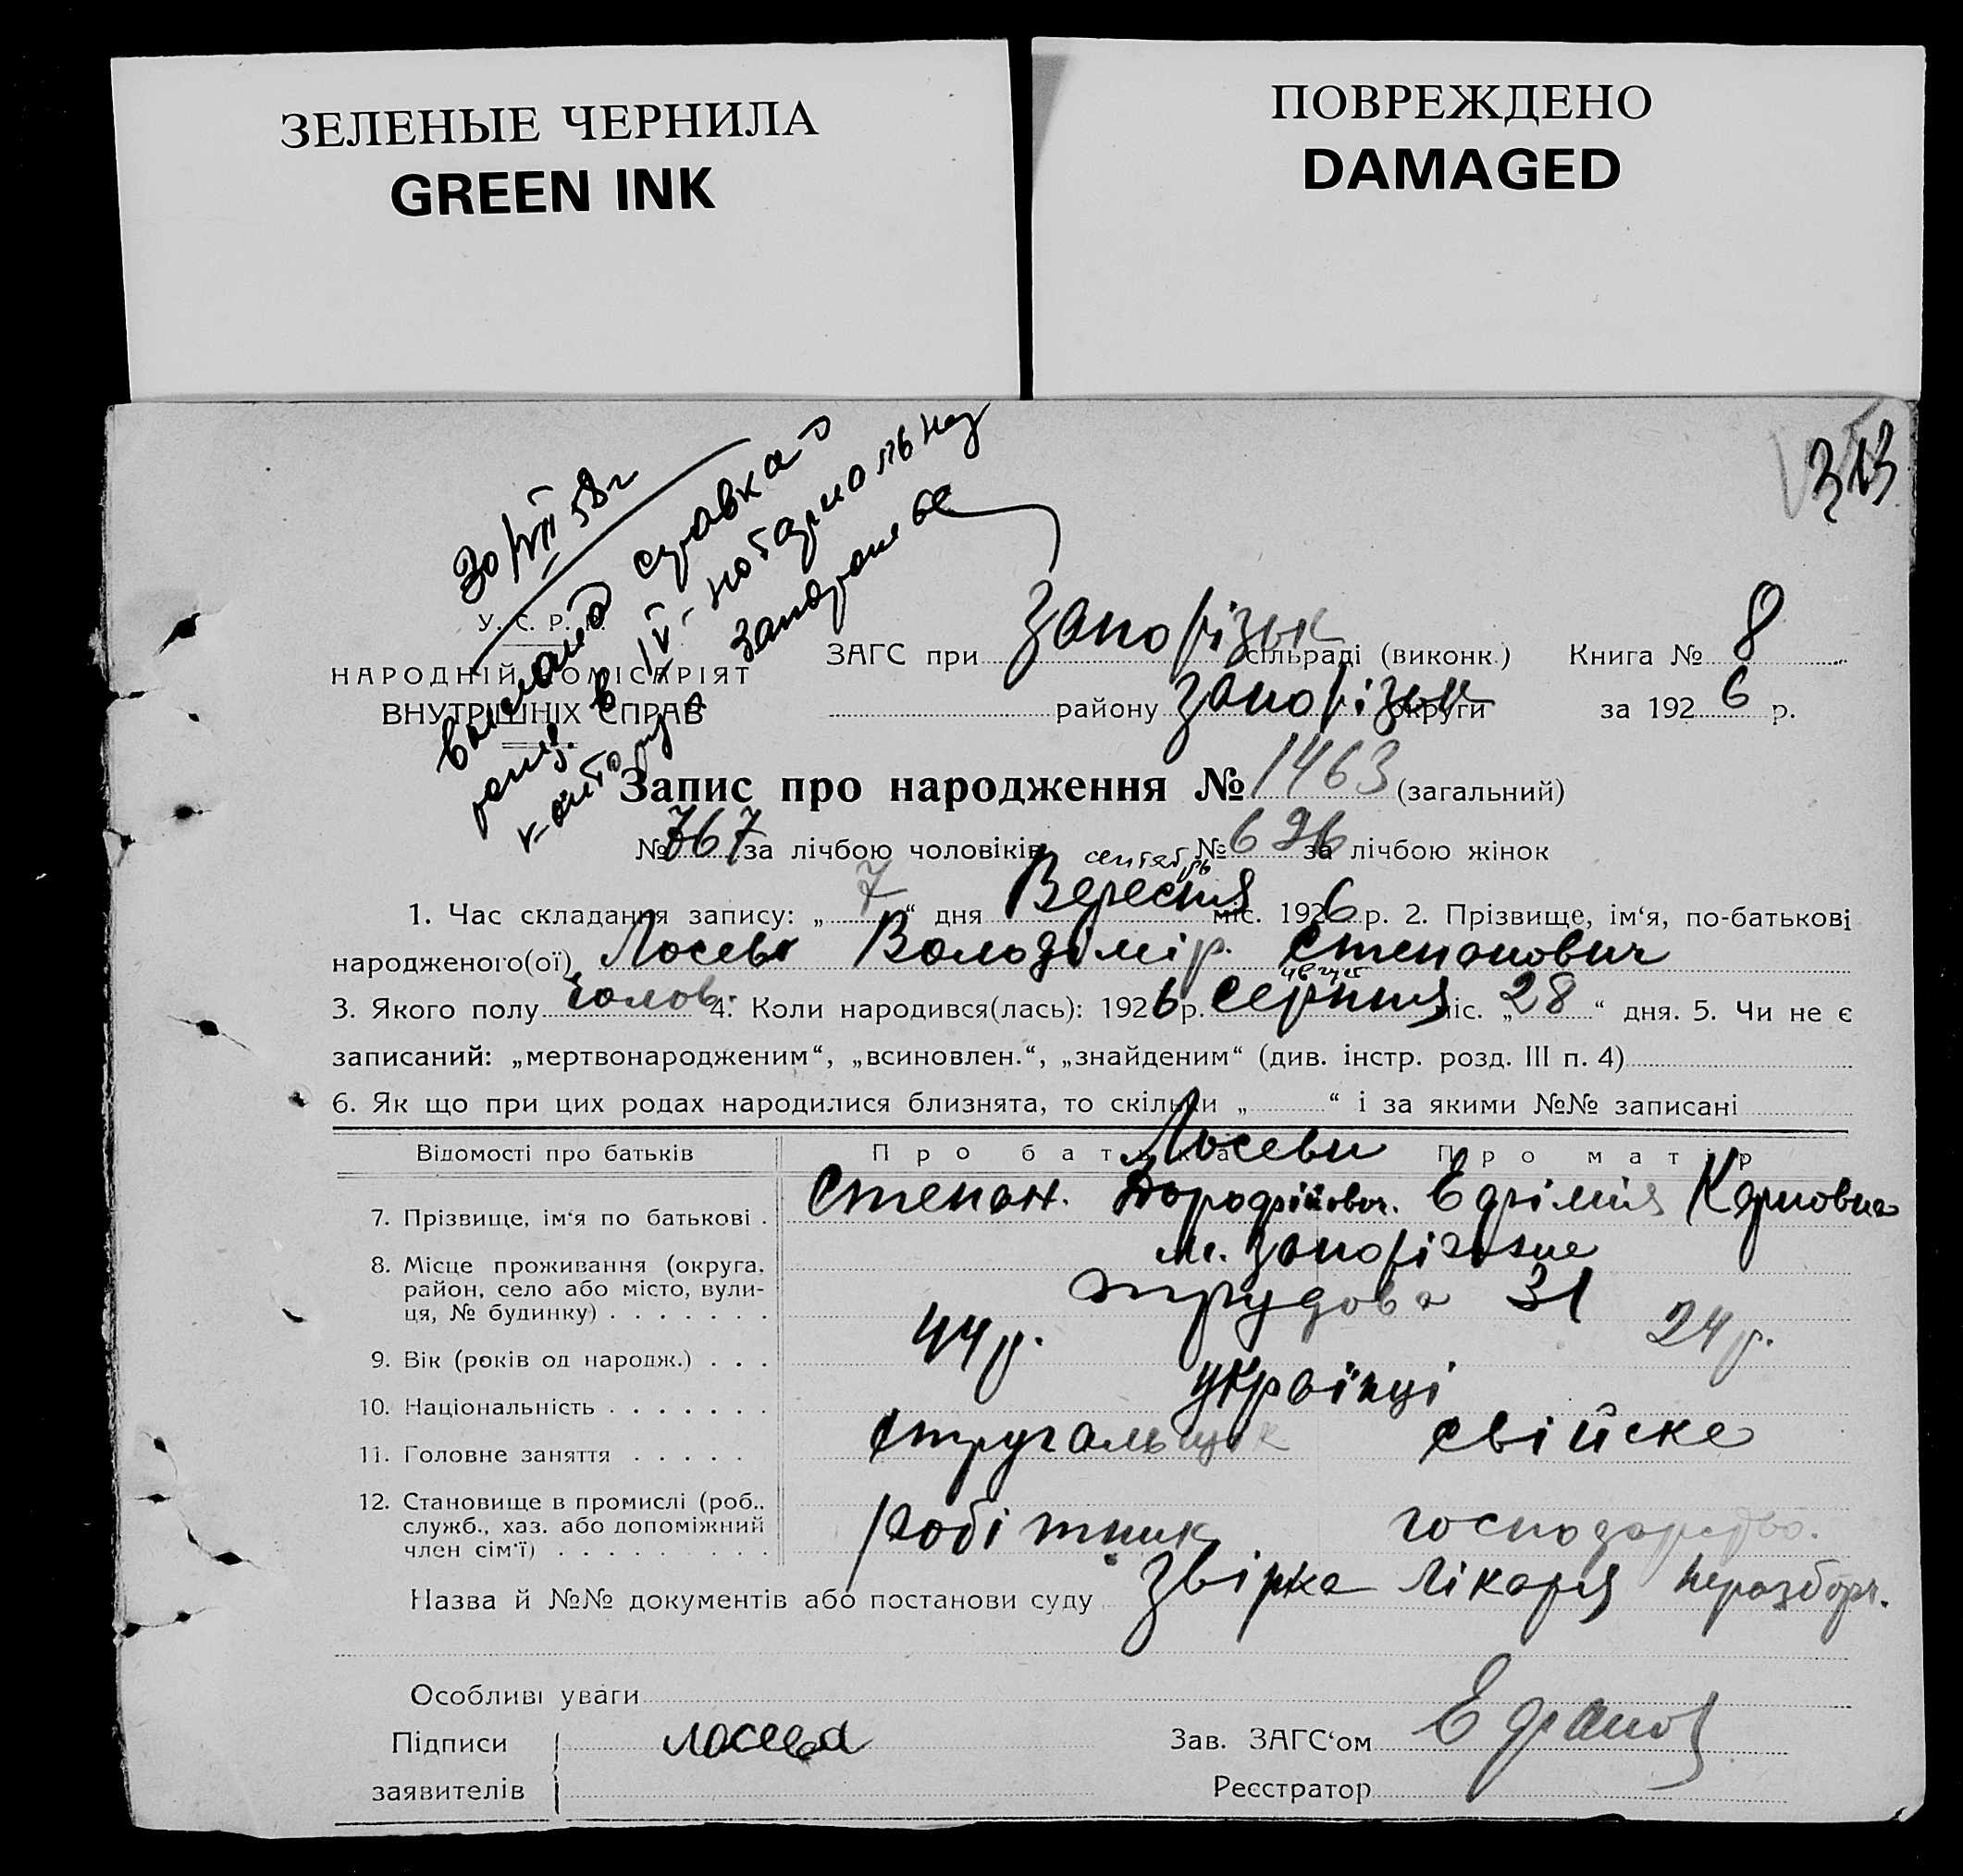 ЗЕЛЕНЫЕ ЧЕРНИЛА
GREEN INK
ПОВРЕЖДЕНО
DAMAGED
30/VII 58г
справка о
в IV нотариальну
У. С. Р. Р.
НАРОДНІЙ КОМІСАРІЯТ
ВНУТРІШНІХ СПРАВ
ЗАГС при Запорізьк сільраді (виконк.) Книга № 8
району Запорізьк округи за 1926 р.
Запис про народження № 1463 (загальний)
№ 767 за лічбою чоловіків № 696 за лічбою жінок
сентябрь
1. Час складання запису: „7“ дня Вересня міс. 1926 р. 2. Прізвище, ім‘я, по-батькові
народженого(ої) Лосев Володімір. Степанович
3. Якого полу чолов. 4. Коли народився(лась): 1926 р. серпня міс. „28“ дня. 5. Чи не є
записаний: „мертвонародженим“, „всиновлен.“, „знайденим“ (див. інстр. розд. III п. 4)
6. Як що при цих родах народилися близнята, то скільки „ “ і за якими №№ записані
Відомості про батьків Про батька Про матір
Лосеви
7. Прізвище, ім‘я по батькові . Степан. Карповна
8. Місце проживання (округа, м. Запоріжже
район, село або місто, вули-
ця, № будинку) . . . . . . . Трудова 31
9. Вік (років од народж.) . . . 44 р. 24 р.
10. Національність . . . . . . . українці
11. Головне заняття . . . . . стругальщик свійске
12. Становище в промислі (роб.,
служб., хаз. або допоміжний робітник господарство.
член сім‘ї) . . . . . . . . .
Назва й №№ документів або постанови суду Звірка лікаря неразборч.
Особливі уваги
Підписи лосева Зав. ЗАГС‘ом
заявителів Реєстратор